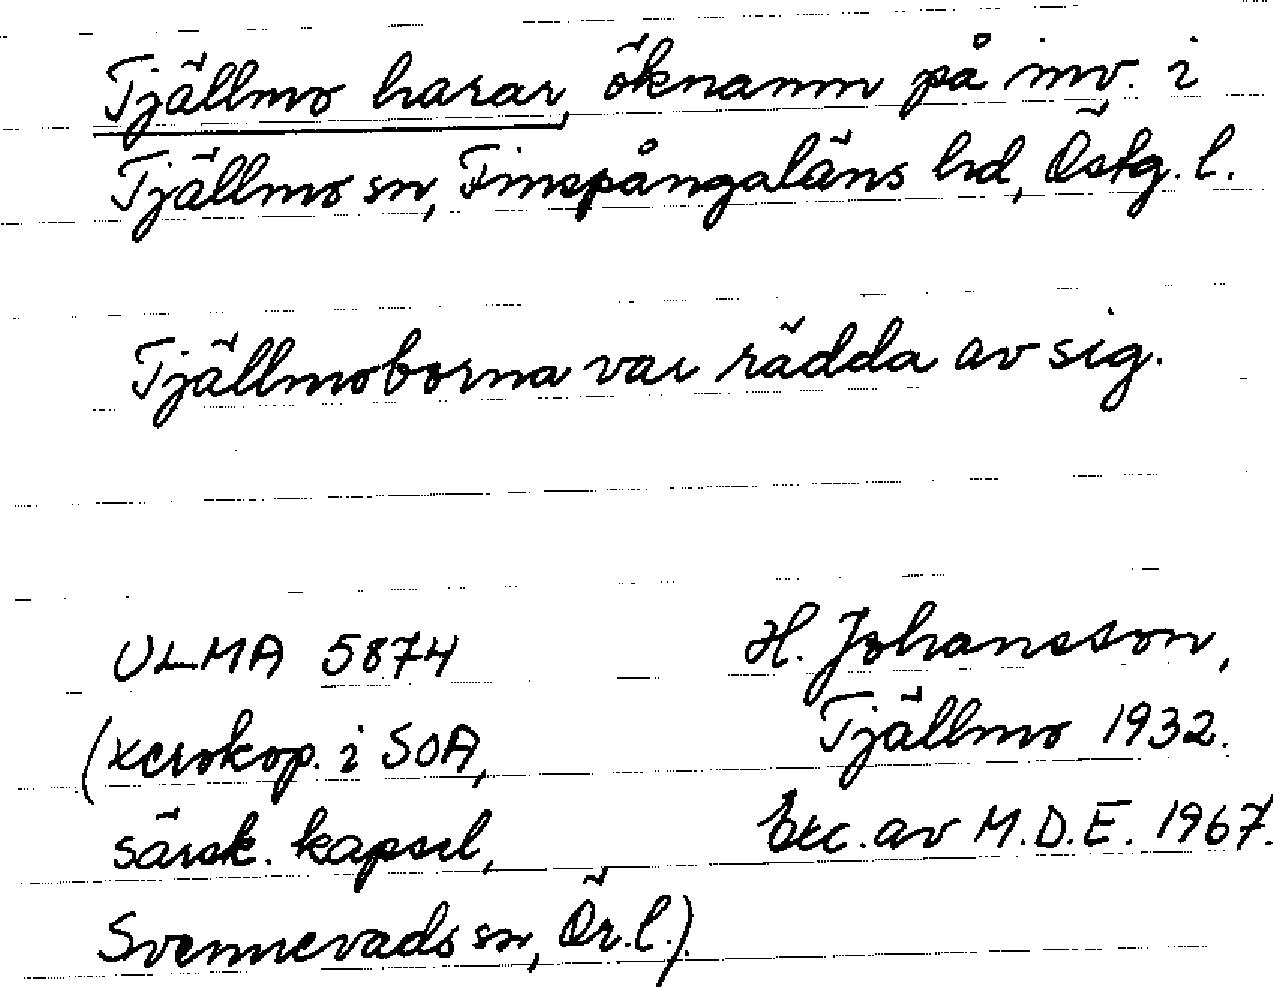 Tjällmo harar, öknamn på inv. i
Tjällmo sn, Finspångaläns hd, Östg. l.
Tjällmoborna var rädda av sig.
ULMA 5874
(xerokop. i SOA,
särsk. kapsel,
Svennevads sn, Ör. l.)
H. Johansson,
Tjällmo 1932.
Exc. av M.D.E. 1967.